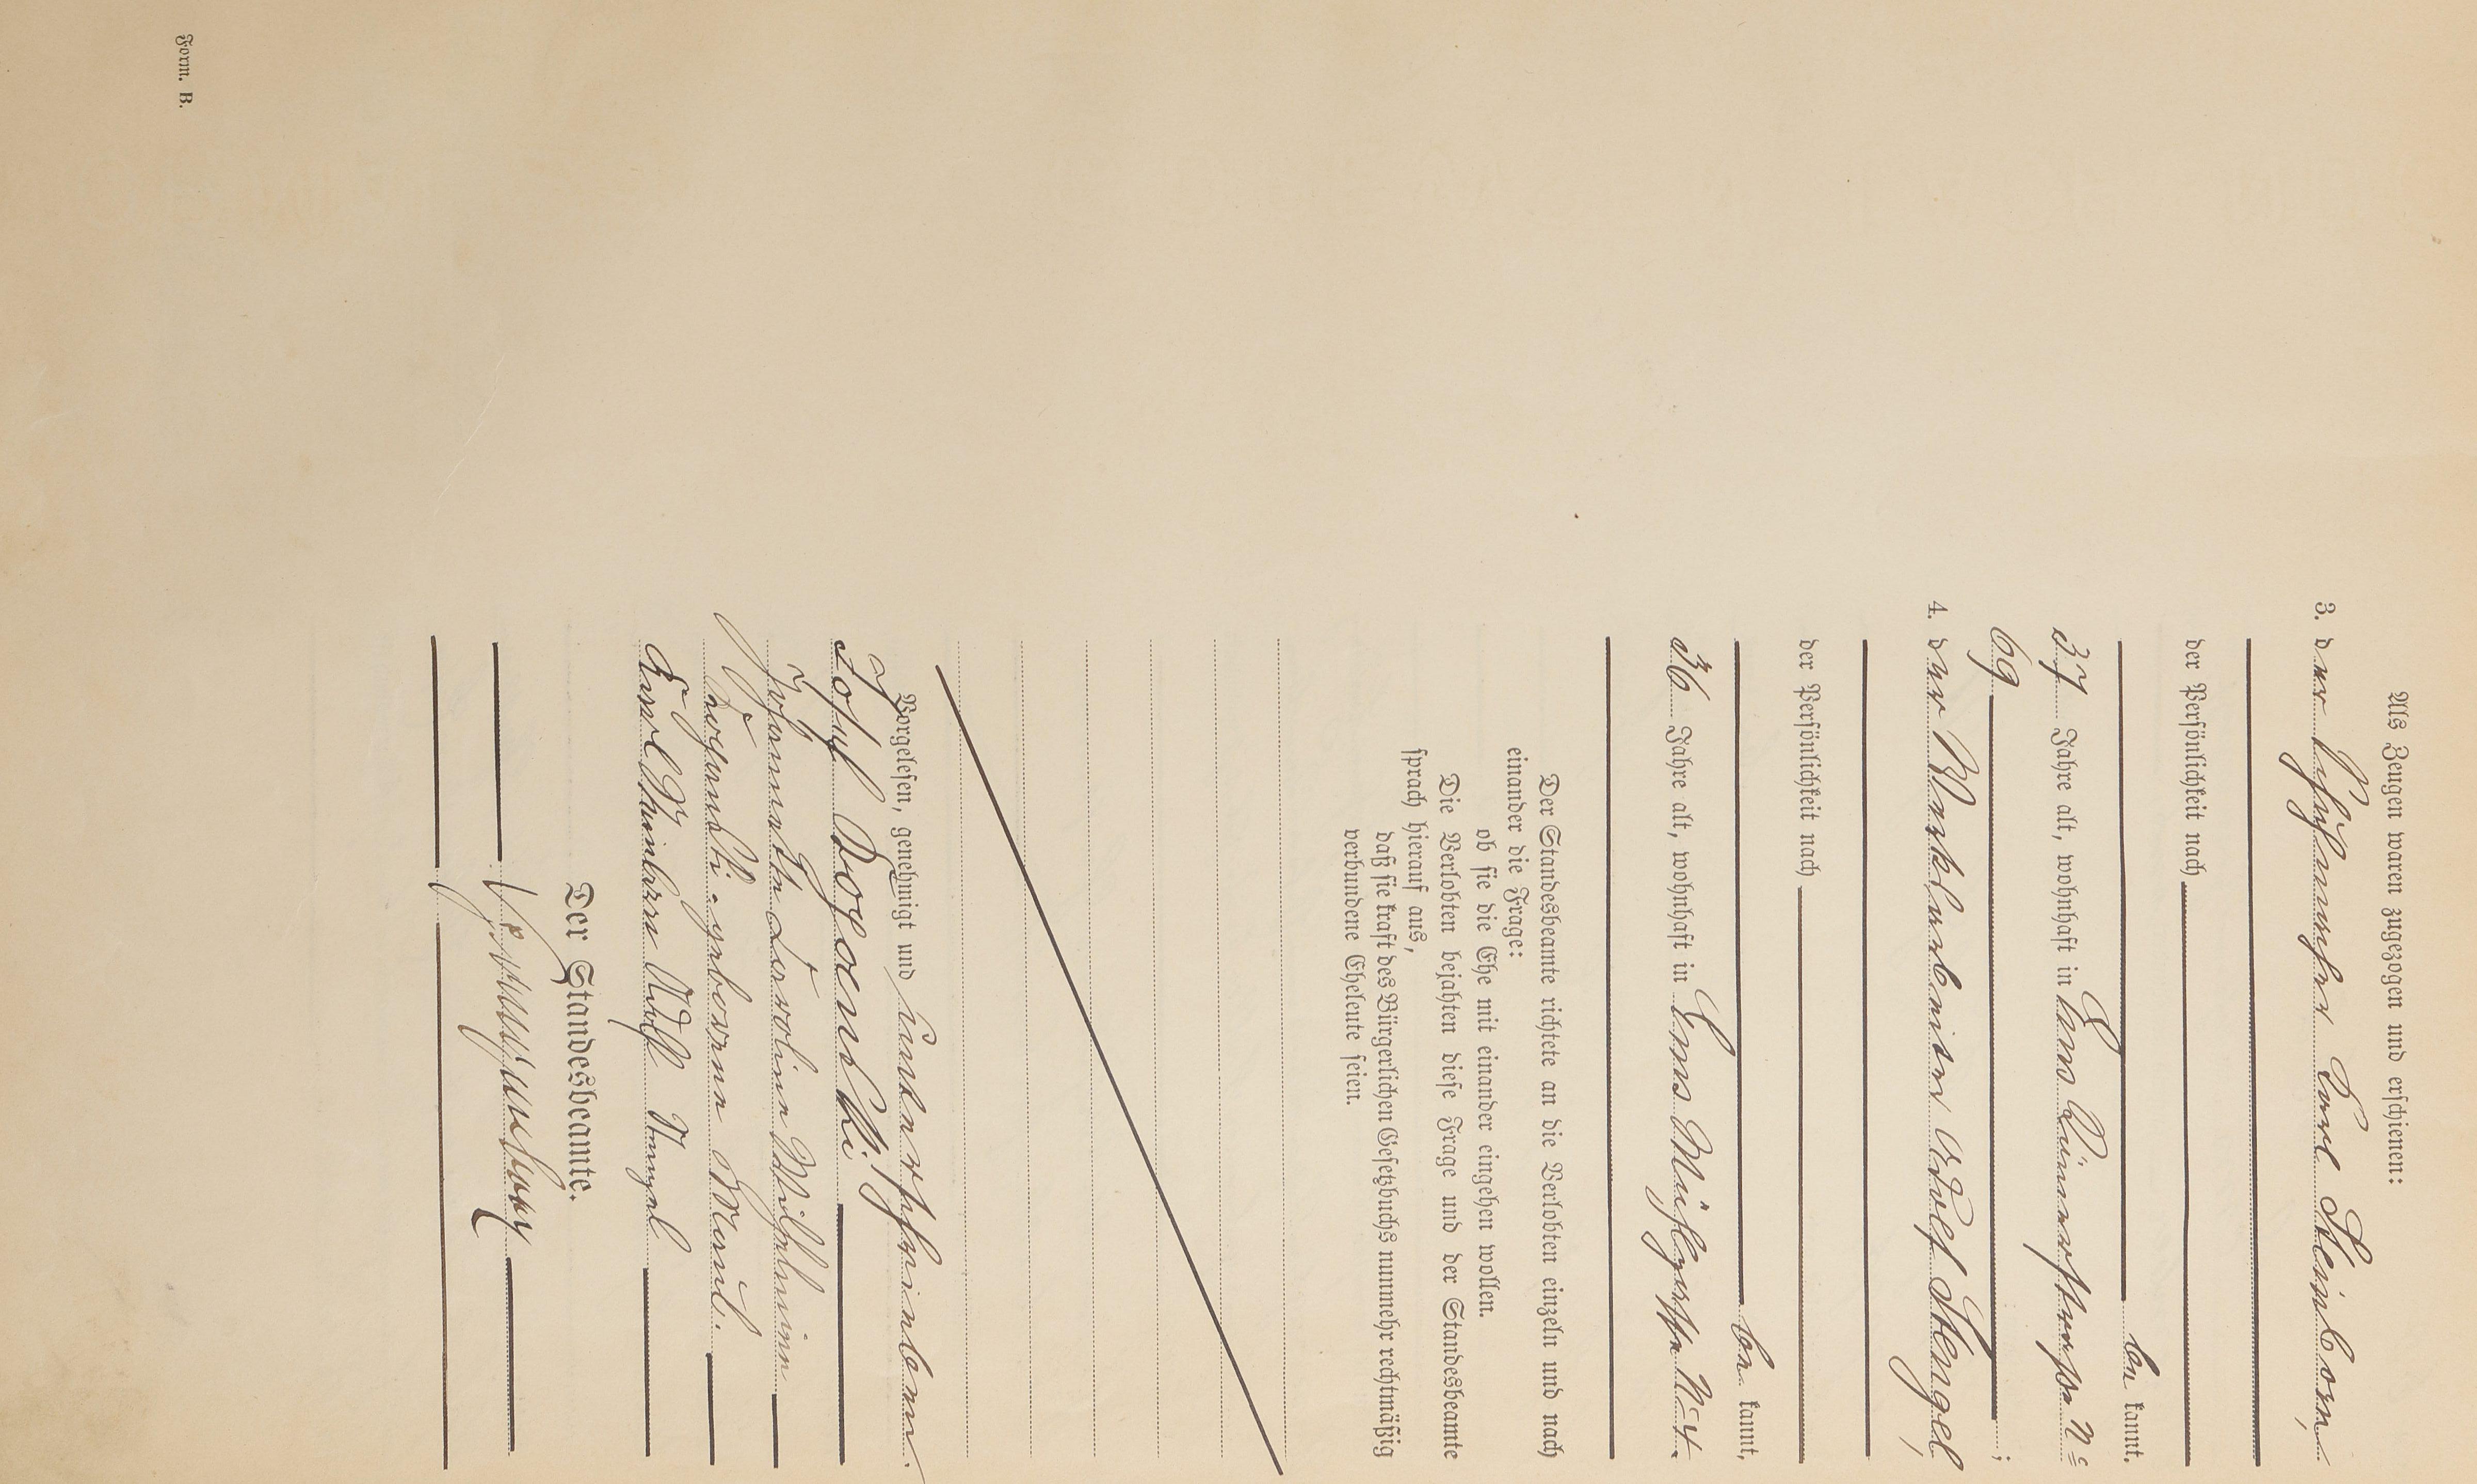 Als Zeugen waren zugezogen und erschienen:
3. der Schuhmacher Karl Steinborn,
der Persönlichkeit nach
be kannt,
37 Jahre alt, wohnhaft in Ems Römerstraße No
69 ;
4. der Werkarbeiter Adolf Stengel,
der Persönlichkeit nach
be kannt,
36 Jahre alt, wohnhaft in Ems Mühlgasse No 4.
Der Standesbeamte richtete an die Verlobten einzeln und nach
einander die Frage:
ob sie die Ehe mit einander eingehen wollen.
Die Verlobten bejahten diese Frage und der Standesbeamte
sprach hierauf aus,
daß sie kraft des Bürgerlichen Gesetzbuchs nunmehr rechtmäßig
verbundene Eheleute seien.
Vorgelesen, genehmigt und unterschrieben.
Josef Rogowski
Johannette Karoline Wilhelmine
Rogowski geborene
Karl Steinborn Adolf Stengel
Der Standesbeamte.
Form. B.